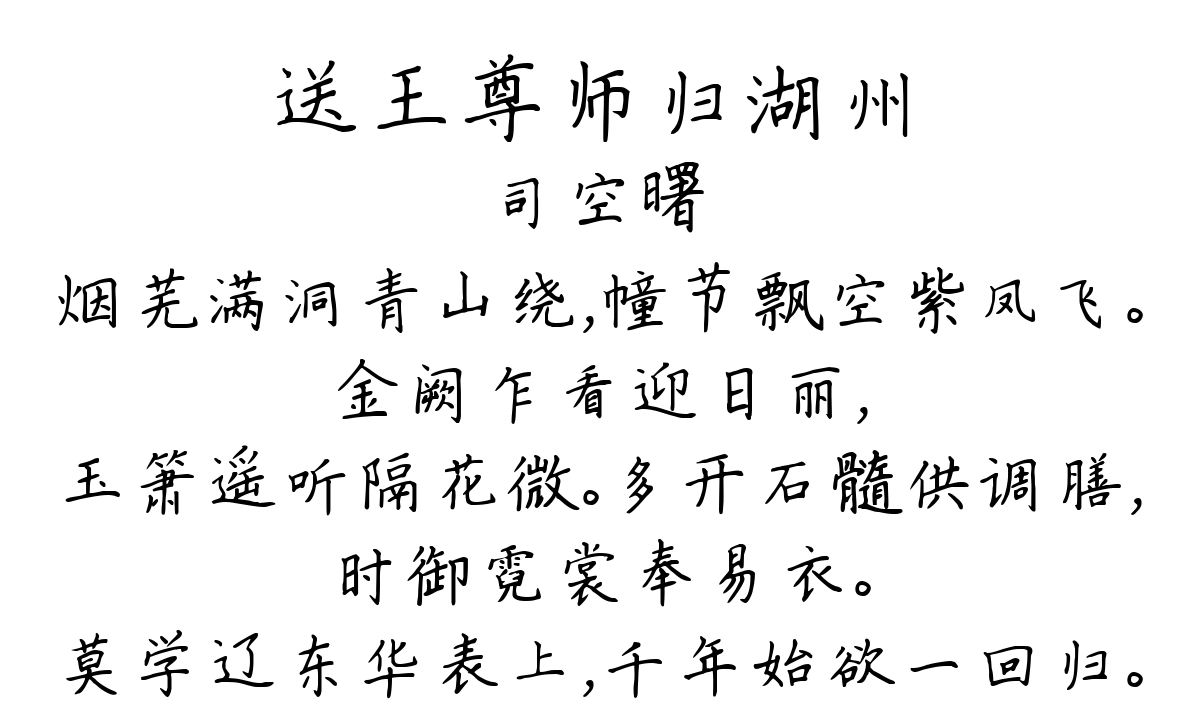 送王尊师归湖州
司空曙
烟芜满洞青山绕,幢节飘空紫凤飞。
金阙乍看迎日丽,
玉箫遥听隔花微。多开石髓供调膳,
时御霓裳奉易衣。
莫学辽东华表上,千年始欲一回归。